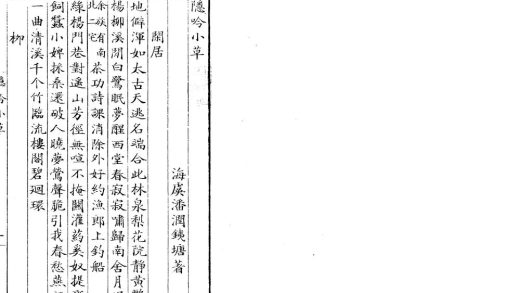 隱吟小草
海虞潘潤鉽塘著
閑居
地僻渾如太古天逃名端合此林泉梨花院靜黃
楊柳溪閒白鷺眠夢醒西堂春寂寂嘯歸南舍月
余族有南北二宅茶功詩課消除外好約漁郎上釣船
綠楊門巷對遙山芳徑無喧不掩關灌藥奚奴提
飼蠶小婢採桑還破人曉夢鶯聲脆引我春愁燕
一曲清溪千个竹臨流樓閣碧迴環
柳
隱吟小草